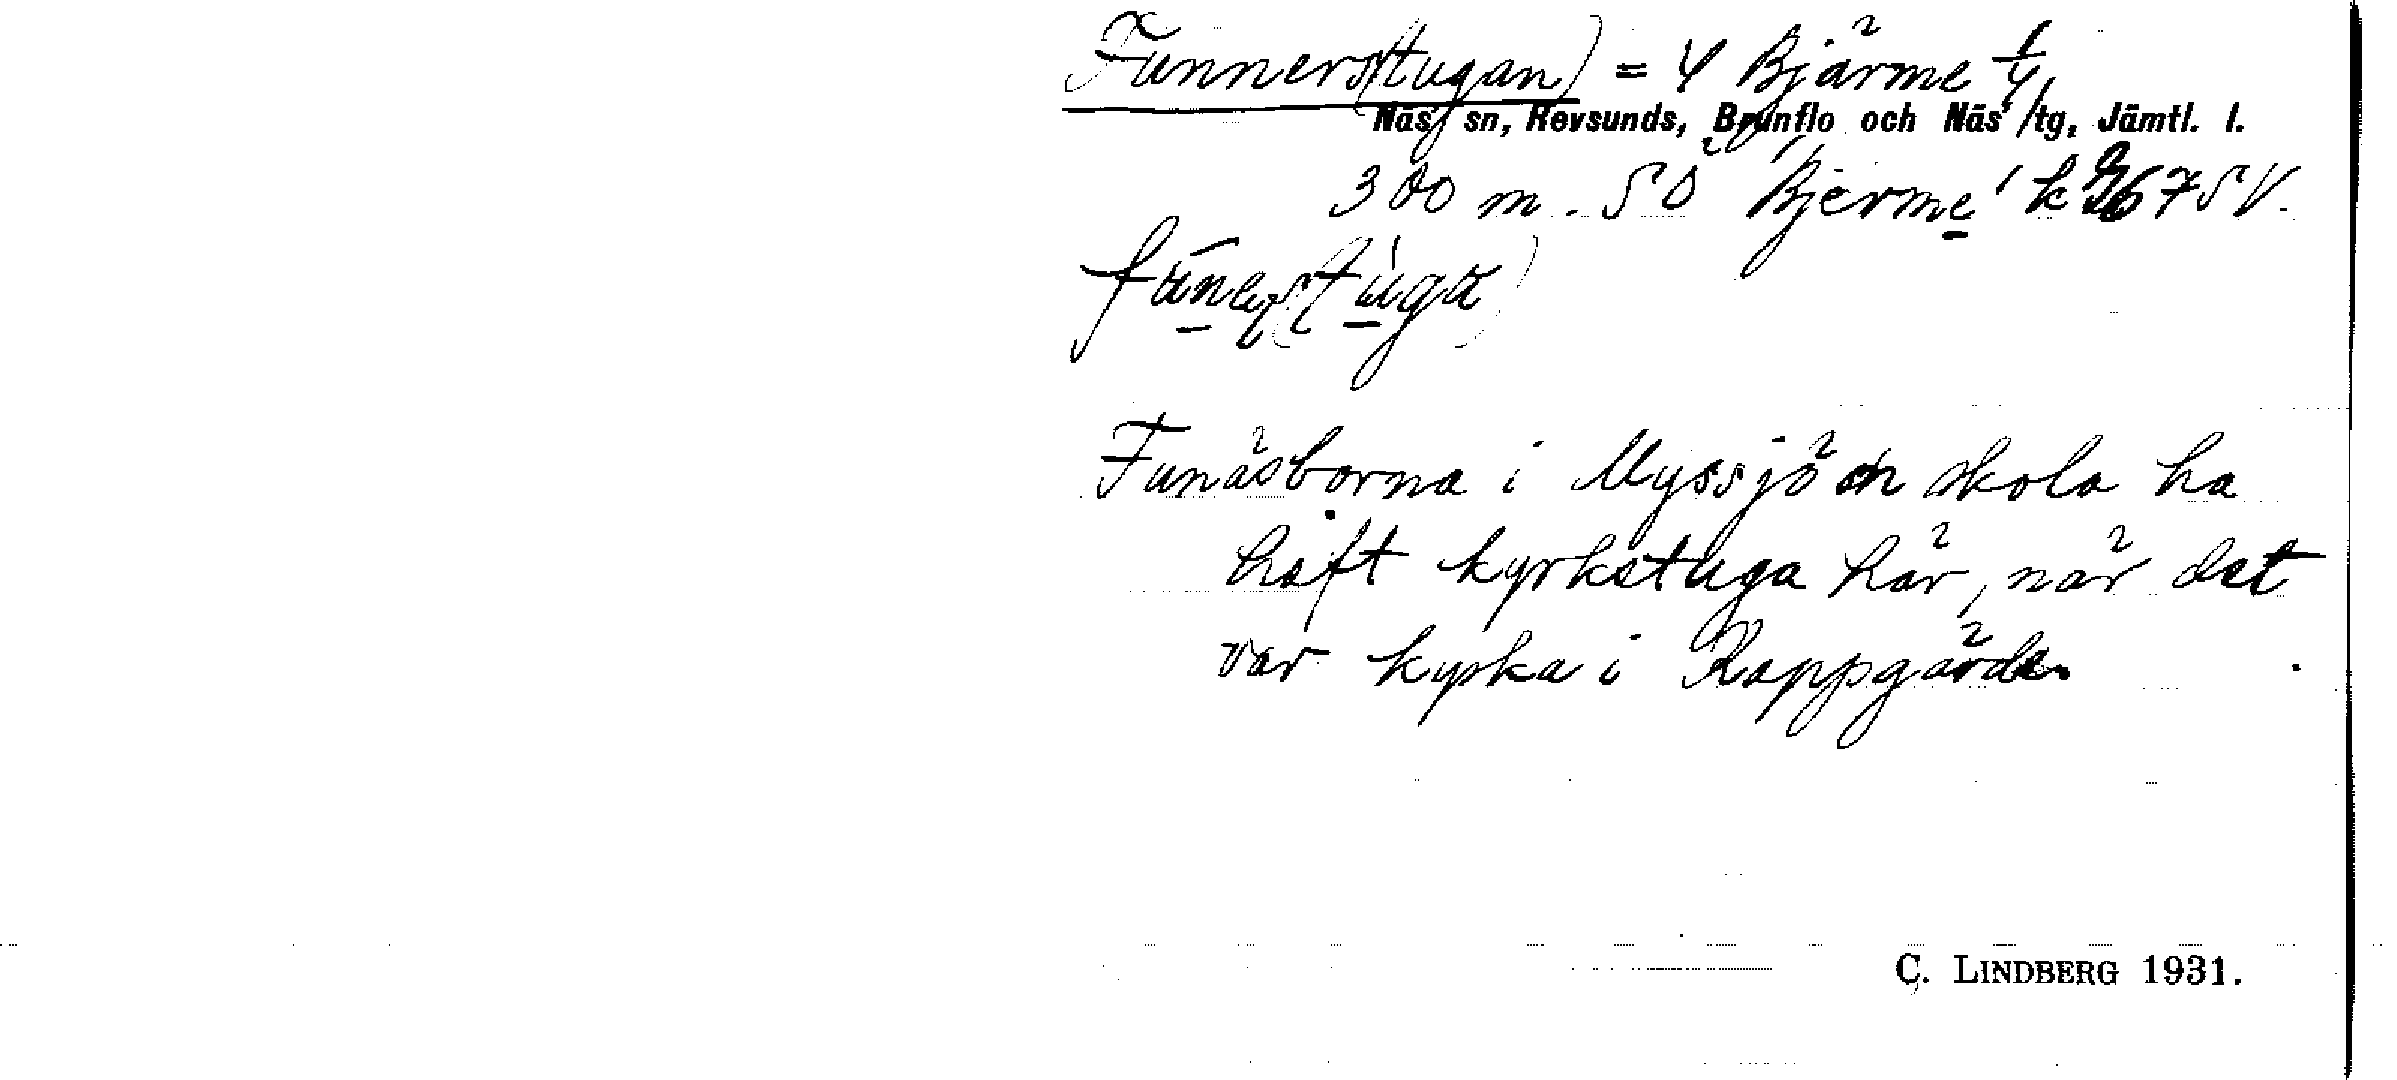 Funners(tugan) = 4 Bjärme 1/4,
Näs sn, Revsunds, Brunflo och Näs /tg, Jämtl. l.
300 m. SO Bjerme k 67 SV.
Funäsborna i Myssjö sn skola ha
haft kyrkstuga här, när det
var kyrka i Kappgärde.
C. LINDBERG 1931.